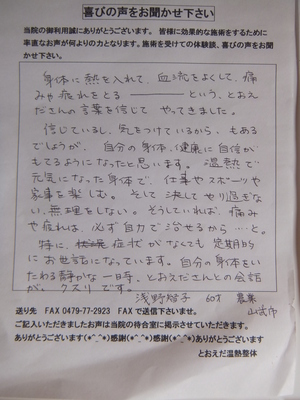 喜びの声をお聞かせ下さい
当院の御利用誠にありがとうございます。皆様に効果的な施術をするために
率直なお声が何よりの力となります。施術を受けての体験談、喜びの声をお聞
かせ下さい。
身体に熱を入れて、血流をよくして、痛
みや疲れをとる ――― という、とおえ
ださんの言葉を信じて やってきました。
信じているし、気をつけているから、もある
でしょうが、自分の身体、健康に自信が
もてるようになったと思います。温熱で
元気になった身体で、仕事やスポーツや
家事を楽しむ。そして決してやり過ぎな
い、無理をしない。そうしていれば、痛み
や疲れは、必ず自力で治せるから…と。
特に、症状がなくても定期的
にお世話になっています。自分の身体をい
たわる静かな一日時、とおえださんとの会話
が、クスリです。
浅野智子 60才 農業
山武市
送り先 FAX 0479-77-2923 FAXで送信下さいませ。
ご記入いただきましたお声は当院の待合室に掲示させていただきます。
ありがとうございます(*^_^*)感謝(*^_^*)ありがとうございます(*^_^*)感謝
とおえだ温熱整体